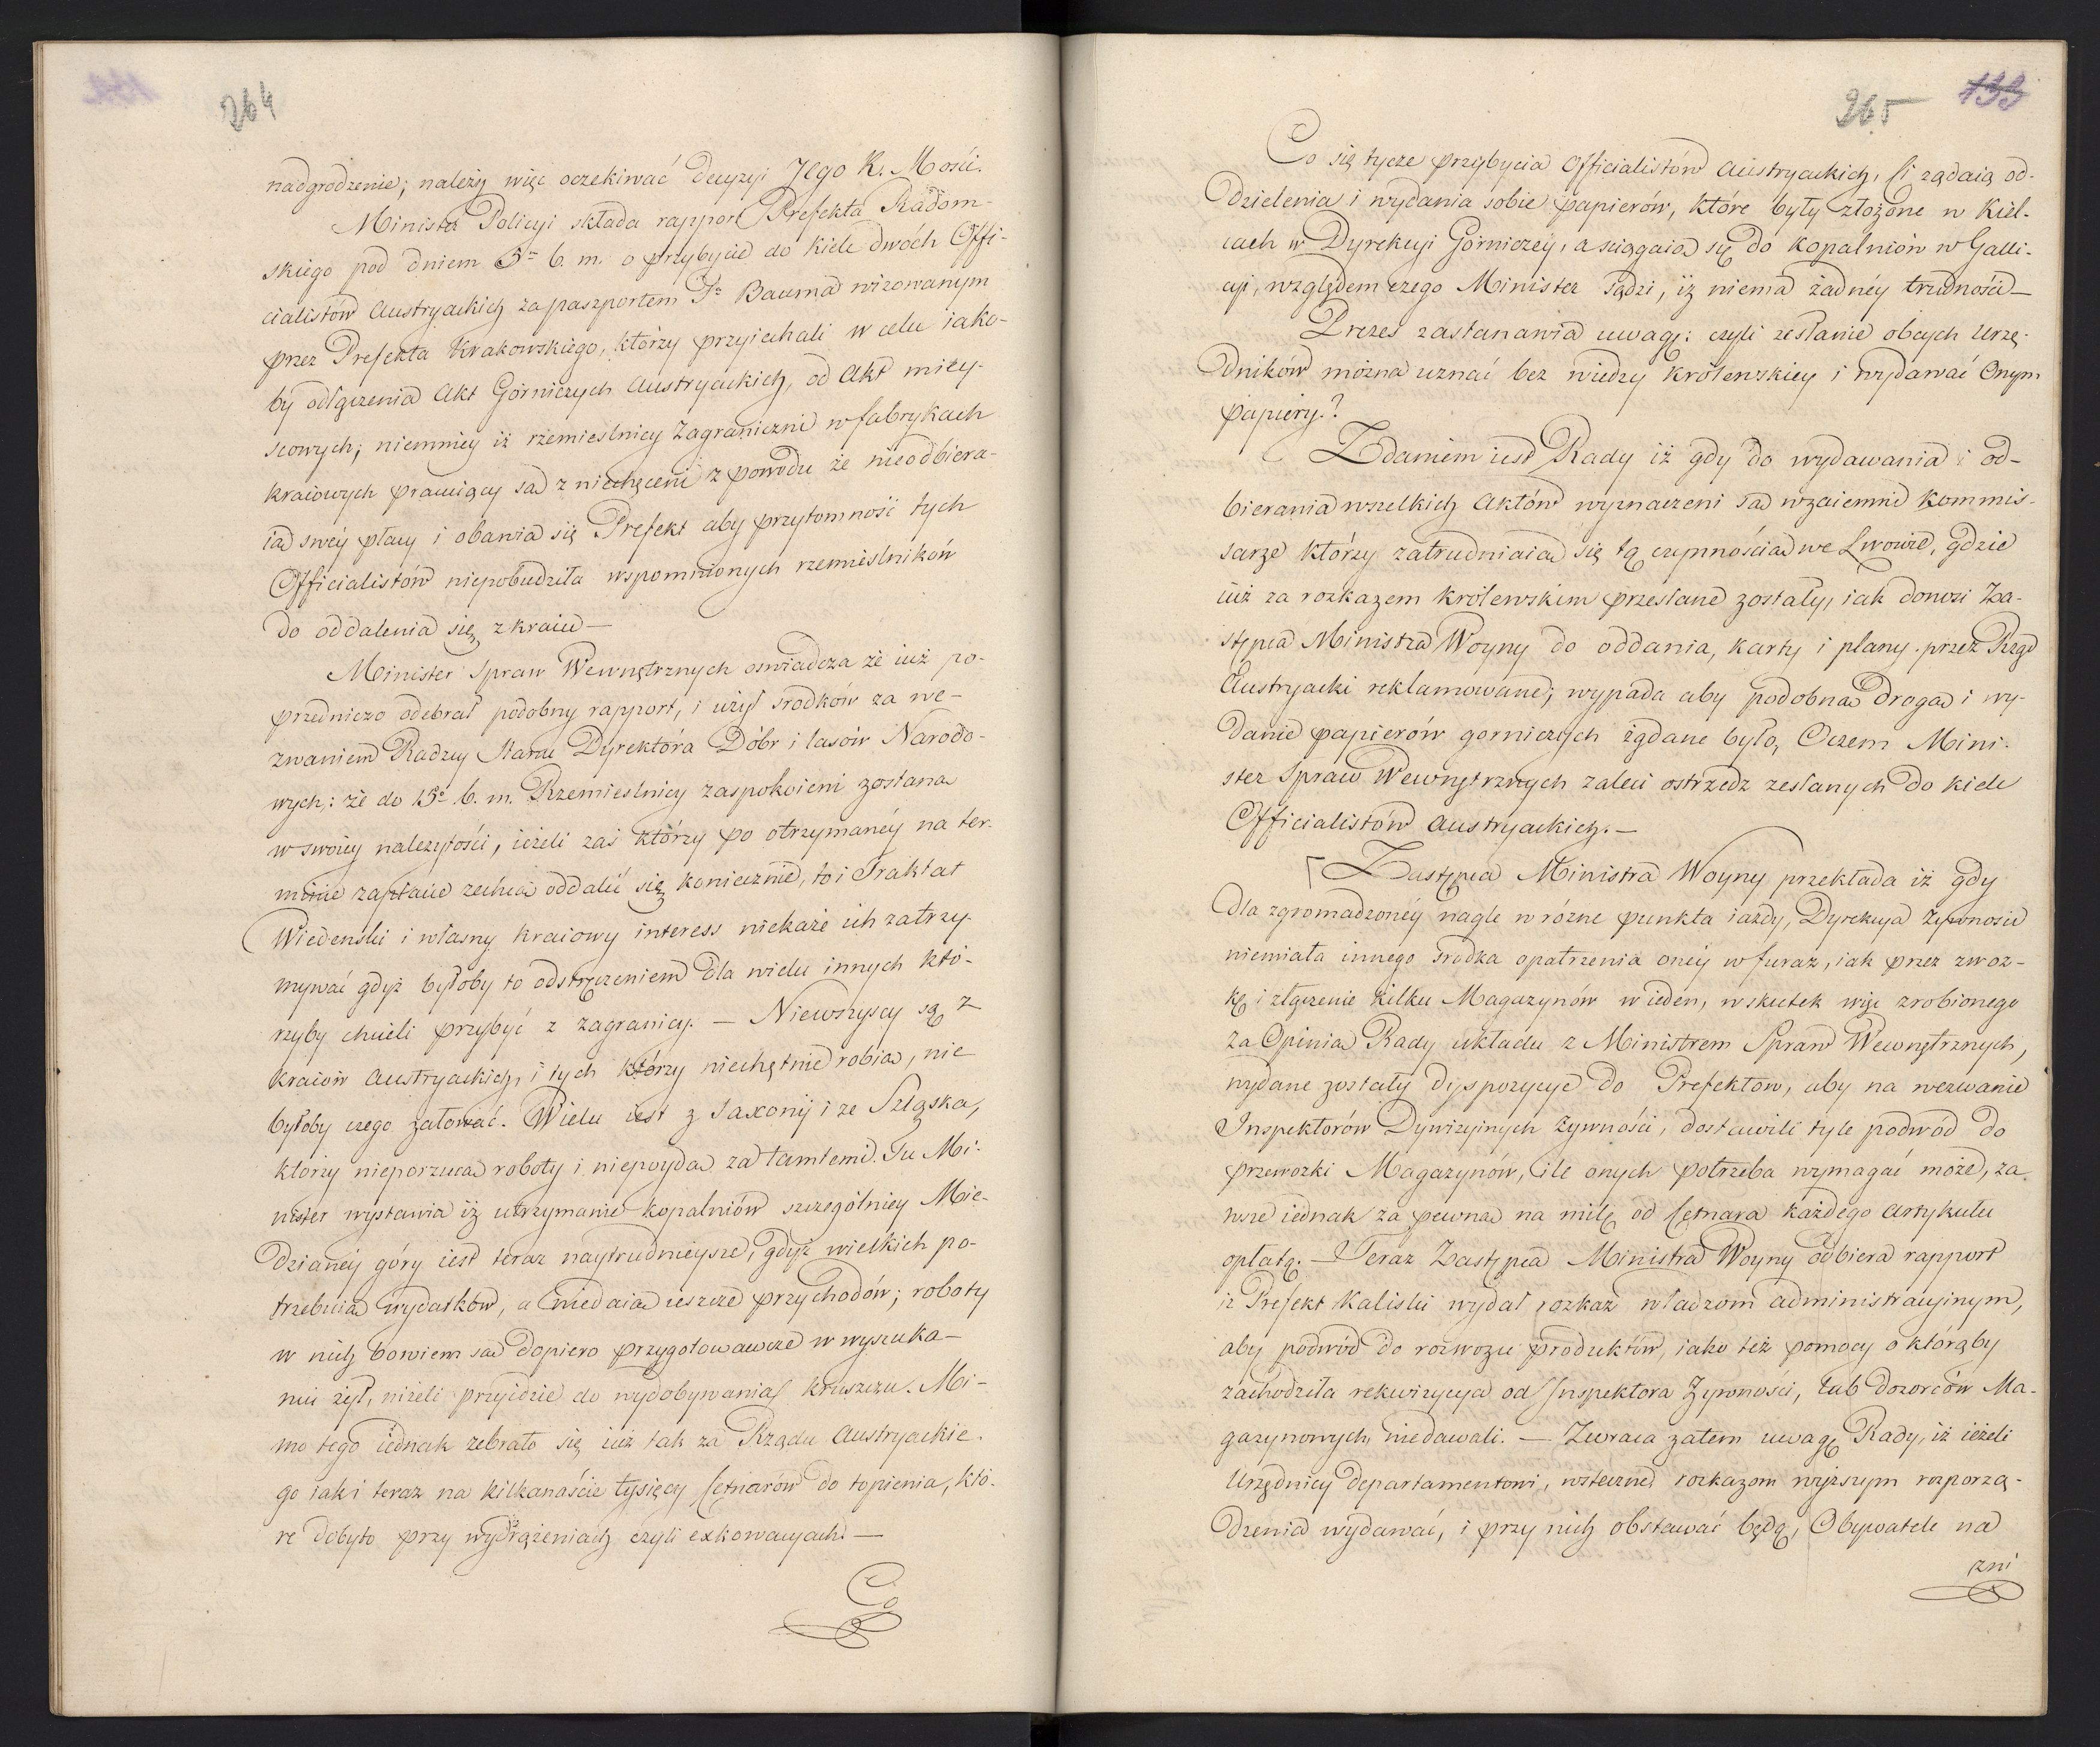 264
nadgrodzenie; należy więc oczekiwać Decyzyi Jego K. Mości.
Minister Policyi składa rapport Prefekta Radom-
skiego pod dniem 5º b. m. o przybyciu do Kielc dwóch Offi-
cialistów Austryackich za paszportem Pª Bauma wizowanym
przez Prefekta Krakowskiego, którzy przyiechali w celu iako-
by odłączenia Akt Górniczych Austryackich, od Akt miey-
scowych; niemniey iż rzemieslnicy Zagraniczni w fabrykach
kraiowych pracuiący są zniechęceni z powodu że nieodbiera-
ią swéy płacy i obawia się Prefekt aby przytomność tych
Officialistów niepobudziła wspomnionych rzemieslników
do oddalenia się z kraiu —
Minister Spraw Wewnętrznych oswiadcza że iuż po-
przedniczo odebrał podobny rapport, i użył srodków za we-
zwaniem Radzcy Stanu Dyrektora Dóbr i lasów Narodo-
wych; że do 15º b. m. Rzemieslnicy zaspokoieni zostaną
w swoiey należytości, ieżeli zaś którzy po otrzymanéy na ter-
minie zapłacie zechcą oddalić się koniecznie, to i Traktat
Wiedenski i własny kraiowy interess niekaże ich zatrzy-
mywać gdyż byłoby to odstręczeniem dla wielu innych któ-
rzyby chcieli przybyć z zagranicy. — Niewszyscy są z
Kraiów Austryackich, i tych którzy niechętnie robią, nie
byłoby czego żałować. Wielu iest z Saxonij i ze Szląska,
którzy nieporzucą roboty i niepoyda za tamtemi. Tu Mi-
nister wystawia iż utrzymanie kopalniów szczególniey Mie-
dzianéy góry iest teraz naytrudnieysze, gdyż wielkich po-
trzebuią wydatków, a niedaią ieszcze przychodów; roboty
w nich bowiem są dopiero przygotowawcze w wyszuka-
niu żył, niżeli przyidzie do wydobywania kruszczu. Mi-
mo tego iednak zebrało się iuż tak za Rządu Austryackie-
go iak i teraz na kilkanaście tysięcy Cetnarów do topienia, któ-
re dobyto przy wydrążeniach czyli exkowacyach. —
Co
265 133
Co się tycze przybycia Officialistów Austryackich, Ci żądaią od-
dzielenia i wydania sobie papierów, które były złożone w Kiel-
cach w Dyrekcyi Górniczéy, a sciągaią się do kopalniów w Galli-
cyi, względem czego Minister sądzi, iż niema żadnéy trudności —
Prezes zastanawia uwagę: czyli zesłanie obcych Urzę-
dników można uznać bez wiedzy Królewskiey i wydawać Onym
papiery.?
Zdaniem iest Rady iż gdy do wydawania i od-
bierania wszelkich Aktów wyznaczeni są wzaiemnie Kommis-
sarze którzy zatrudniaią się tą czynnością we Lwowie, gdzie
iuż za rozkazem Królewskim przesłane zostały, iak donosi Za-
stępca Ministra Woyny do oddania, karty i plany przez Rząd
Austryacki reklamowane; wypada aby podobną drogą i wy-
danie papierów gorniczych żądane było, Oczem Mini-
ster Spraw Wewnętrznych zaleci ostrzedz zesłanych do Kielc
Officialistów Austryackich. —
Zastępca Ministra Woyny przekłada iż gdy
dla zgromadzonéy nagle w różne punkta iazdy, Dyrekcya żywnosci
niemiała innego srodka opatrzenia onéy w furaż, iak przez zwoz-
kę i złączenie kilku Magazynów w ieden, w skutek więc zrobionego
za Opinią Rady układu z Ministrem Spraw Wewnętrznych,
wydane zostały dyspozycye do Prefektow, aby na wezwanie
Inspektorów Dywizyinych żywności, dostawili tyle podwód do
przewozki Magazynów, ile onych potrzeba wymagać może, za-
wsze iednak za pewną na milę od Cetnara każdego artykułu
opłatą. — Teraz Zastępca Ministra Woyny odbiera rapport
iż Prefekt Kaliski wydał rozkaz władzom administracyinym,
aby podwód do rozwozu produktów, iako też pomocy o którąby
zachodziła rekwizycya od Inspektora Żywności, lub dozorców Ma-
gazynowych, niedawali. — Zwraca zatem uwagę Rady, iż ieżeli
Urzędnicy Departamentowi, wsteczne rozkazom wyższym rozporzą-
dzenia wydawać, i przy nich obstawać będą, Obywatele na